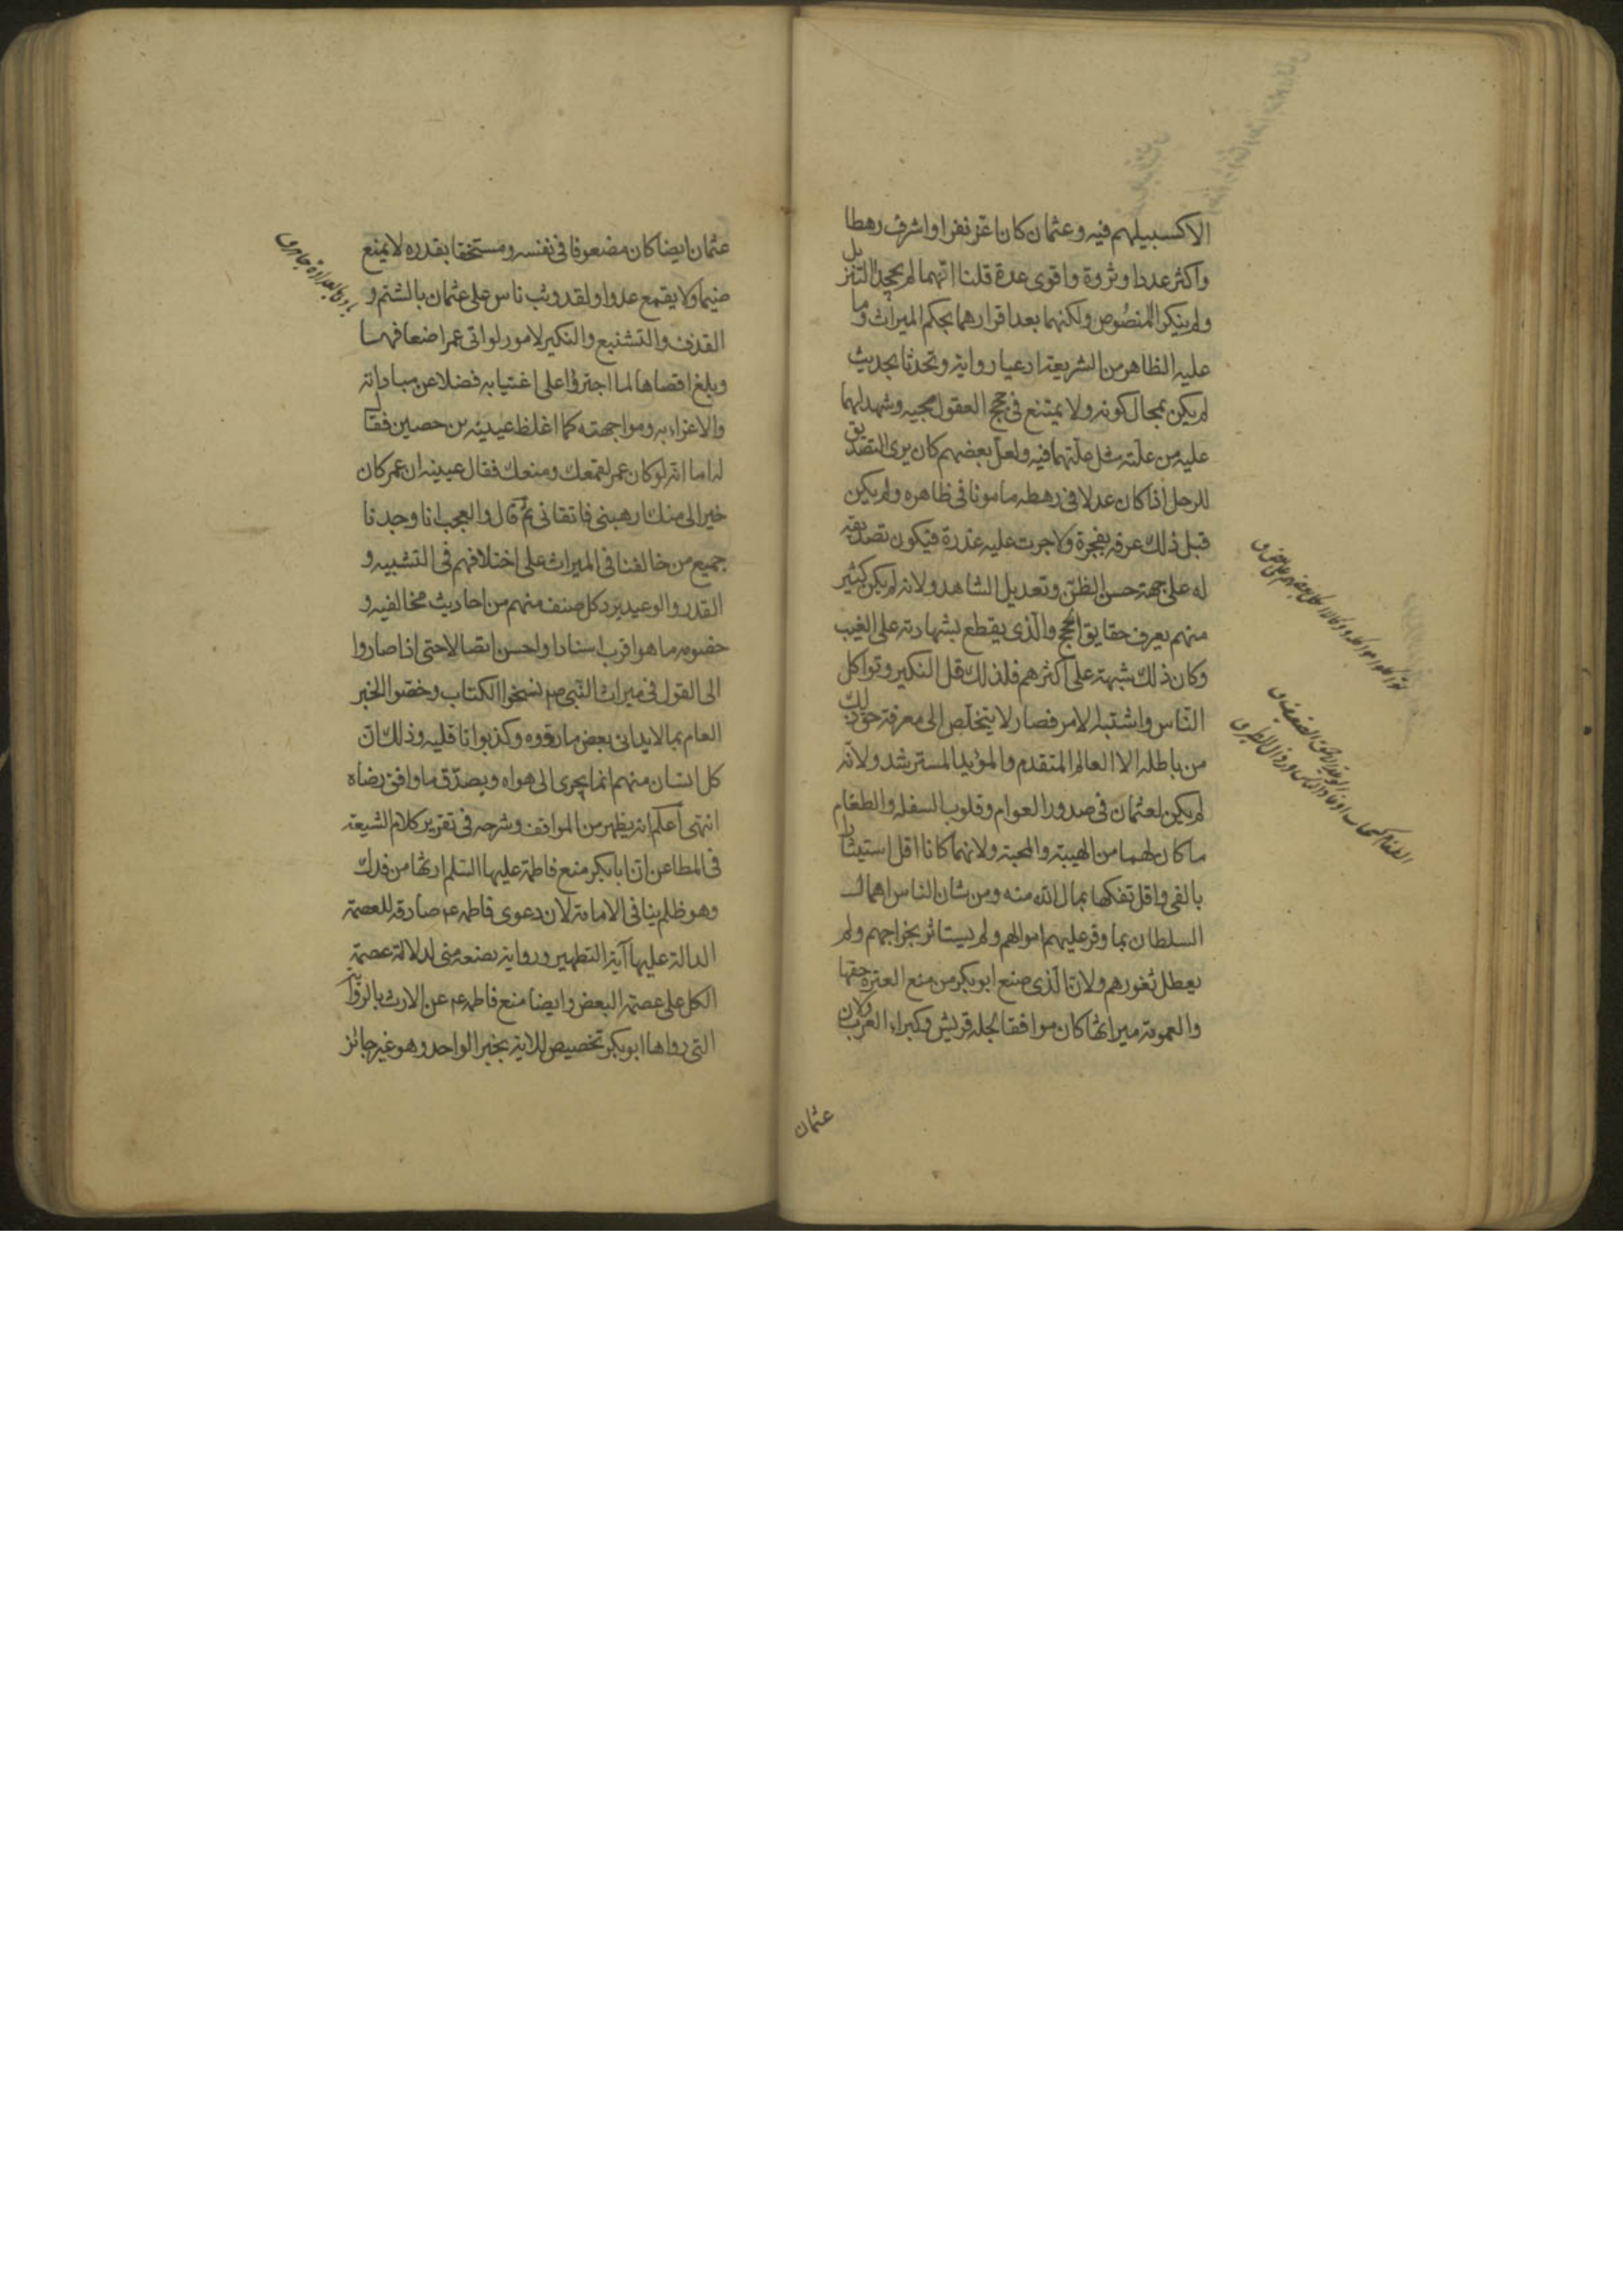 الا كسبيلهم فيه وعثمان كان اعز نفرا واشرف رهطا
واكثر عددا وثروة واقوى عدة قلنا انهما لم يجحدا التنزيل
ولم ينكرا المنصوص ولكنهما بعد اقرارهما بحكم الميراث وما
عليه الظاهر من الشريعة ادعيا رواية وتحدثا بحديث
لم يكن بمحال كونه ولا يمتنع فى حجج العقول مجيه وشهد لهما
عليه من علته مثل علتهما فيه ولعل بعضهم كان يرى التصديق
للرجل اذا كان عدلا فى رهطه مامونا فى ظاهره ولم يكن
قبل ذلك عرفه بفجرة ولا جرت عليه غدرة فيكون تصديقه
له على جهة حسن الظن وتعديل الشاهد ولانه لم يكن كثير
منهم يعرف حقايق الحجج والذى يقطع بشهادته على الغيب
وكان ذلك شبهة على اكثرهم فلذلك قل النكير وتواكل
الناس واشتبه الامر فصار لا يتخلص الى معرفة حق ذلك
من باطله الا العالم المتقدم والمؤيد المسترشد ولانه
لم يكن لعثمان فى صدور العوام وقلوب السفلة والطغام
ما كان لهما من الهيبة والمحبة ولانهما كانا اقل استيثارا
بالفى واقل تفكها بمال الله منه ومن شان الناس اهمال
السلطان بما وفر عليهم اموالهم ولم يستاثر بخراجهم ولم
يعطل ثغورهم ولان الذى صنع ابو بكر من منع العترة حقها
والعمومة ميراثها كان موافقا لجلة قريش وكبراء العرب ولان
عثمان
عثمان ايضا كان مضعوفا فى نفسه ومستخفا بقدره لا يمنع
ضيما ولا يقمع عدوا ولقد وثب ناس على عثمان بالشتم و
القذف والتشنيع والنكير لامور لو اتى عمر اضعافها
وبلغ اقصاها لما اجترؤا على اغتيابه فضلا عن مباداته
والاغراء به ومواجهته كما اغلظ عيينه بن حصين فقال
له اما انه لو كان عمر لقمعك ومنعك فقال عيينه ان عمر كان
خيرا لى منك ارهبنى فاتقانى ثم قال والعجب انا وجدنا
جميع من خالفنا فى الميراث على اختلافهم فى التشبيه و
القدر والوعيد يرد كل صنف منهم من احاديث مخالفيه و
خصومه ما هو اقرب اسنادا واحسن اتصالا حتى اذا صاروا
الى القول فى ميراث النبى ص نسخوا الكتاب وخصوا الخبر
العام بما لا يدانى بعض ما ردوه وكذبوا ناقليه وذلك ان
كل انسان منهم انما يجرى الى هواه ويصدق ما وافق رضاه
انتهى اعلم انه يظهر من المواقف وشرحه فى تقرير كلام الشيعة
فى المطاعن ان ابا بكر منع فاطمة عليها السلم ارثها من فدك
وهو ظلم ينافى الامامة لان دعوى فاطمه ع صادقه للعصمة
الدالة عليها آية التطهير ورواية بضعة منى لدلالة عصمة
الكل على عصمة البعض وايضا منع فاطمه ع عن الارث بالرواية
التى رواها ابو بكر تخصيص للاية بخبر الواحد وهو غير جائز